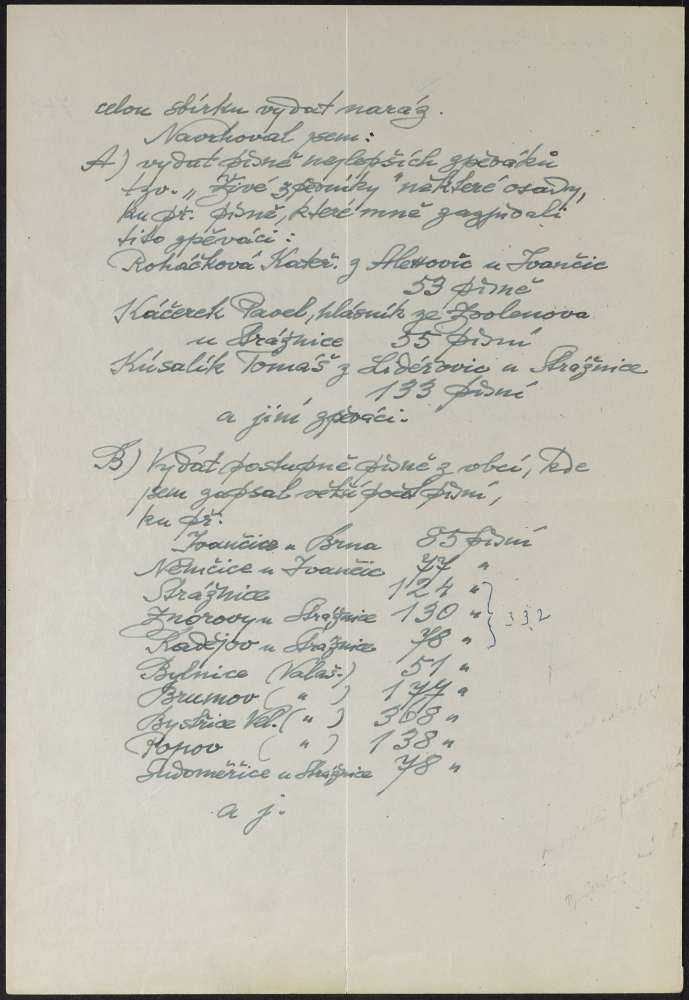 celou sbírku vydat naráz.
Navrhoval jsem:
A) vydat písně nejlepších zpěváků
tzv. „Živé zpěvníky" některé osady,
ku př. písně, které mně zazpívali
tito zpěváci:
Roháčková Kateř. z Alexovic u Ivančic
53 písně
Káčerek Pavel, hlásník ze
u Strážnice 55 písní
Kúsalík Tomáš z Lidéřovic u Strážnice
133 písní
a jiní zpěváci.
B) Vydat postupně písně z obcí, kde
jsem zapsal větší počet písní,
ku př:
Ivančice u Brna 85 písní
Němčice u Ivančic 77 "
Strážnice 124 "
Znorovy u Strážnice 130 " } 332
Radějov u Strážnice 78 "
Bylnice (Valaš.) 51 "
Brumov ( " ) 177 "
Bystřice Vel. ( " ) 368 "
Popov ( " ) 138 "
Sudoměřice u Strážnice 78 "
a j.